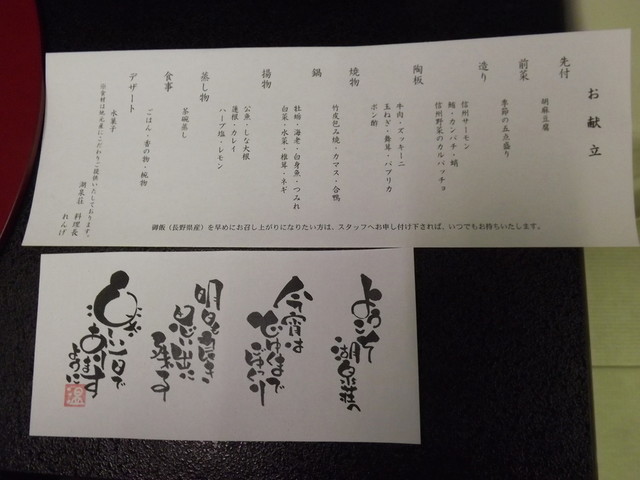 お献立
先付
胡麻豆腐
前菜
季節の五点盛り
造り
信州サーモン
鮪・カンパチ・蛸
信州野菜のカルパッチョ
陶板
牛肉・ズッキーニ
玉ねぎ・舞茸・パプリカ
ポン酢
焼物
竹皮包み焼・カマス・合鴨
鍋
牡蛎・海老・白身魚・つみれ
白菜・水菜・椎茸・ネギ
揚物
公魚・しな大根
蓮根・カレイ
ハーブ塩・レモン
蒸し物
茶碗蒸し
食事
ごはん・香の物・椀物
デザート
水菓子
※食材は地元産にこだわりご提供いたしております。
湖泉荘 料理長
れんげ
御飯(長野県産)を早めにお召し上がりになりたい方は、スタッフへお申し付け下されば、いつでもお持ちいたします。
ようこそ
湖泉荘へ
今宵は
心ゆくまで
ごゆっくり
明日も良き
思い出に
残る
良い一日で
あります
ように
温